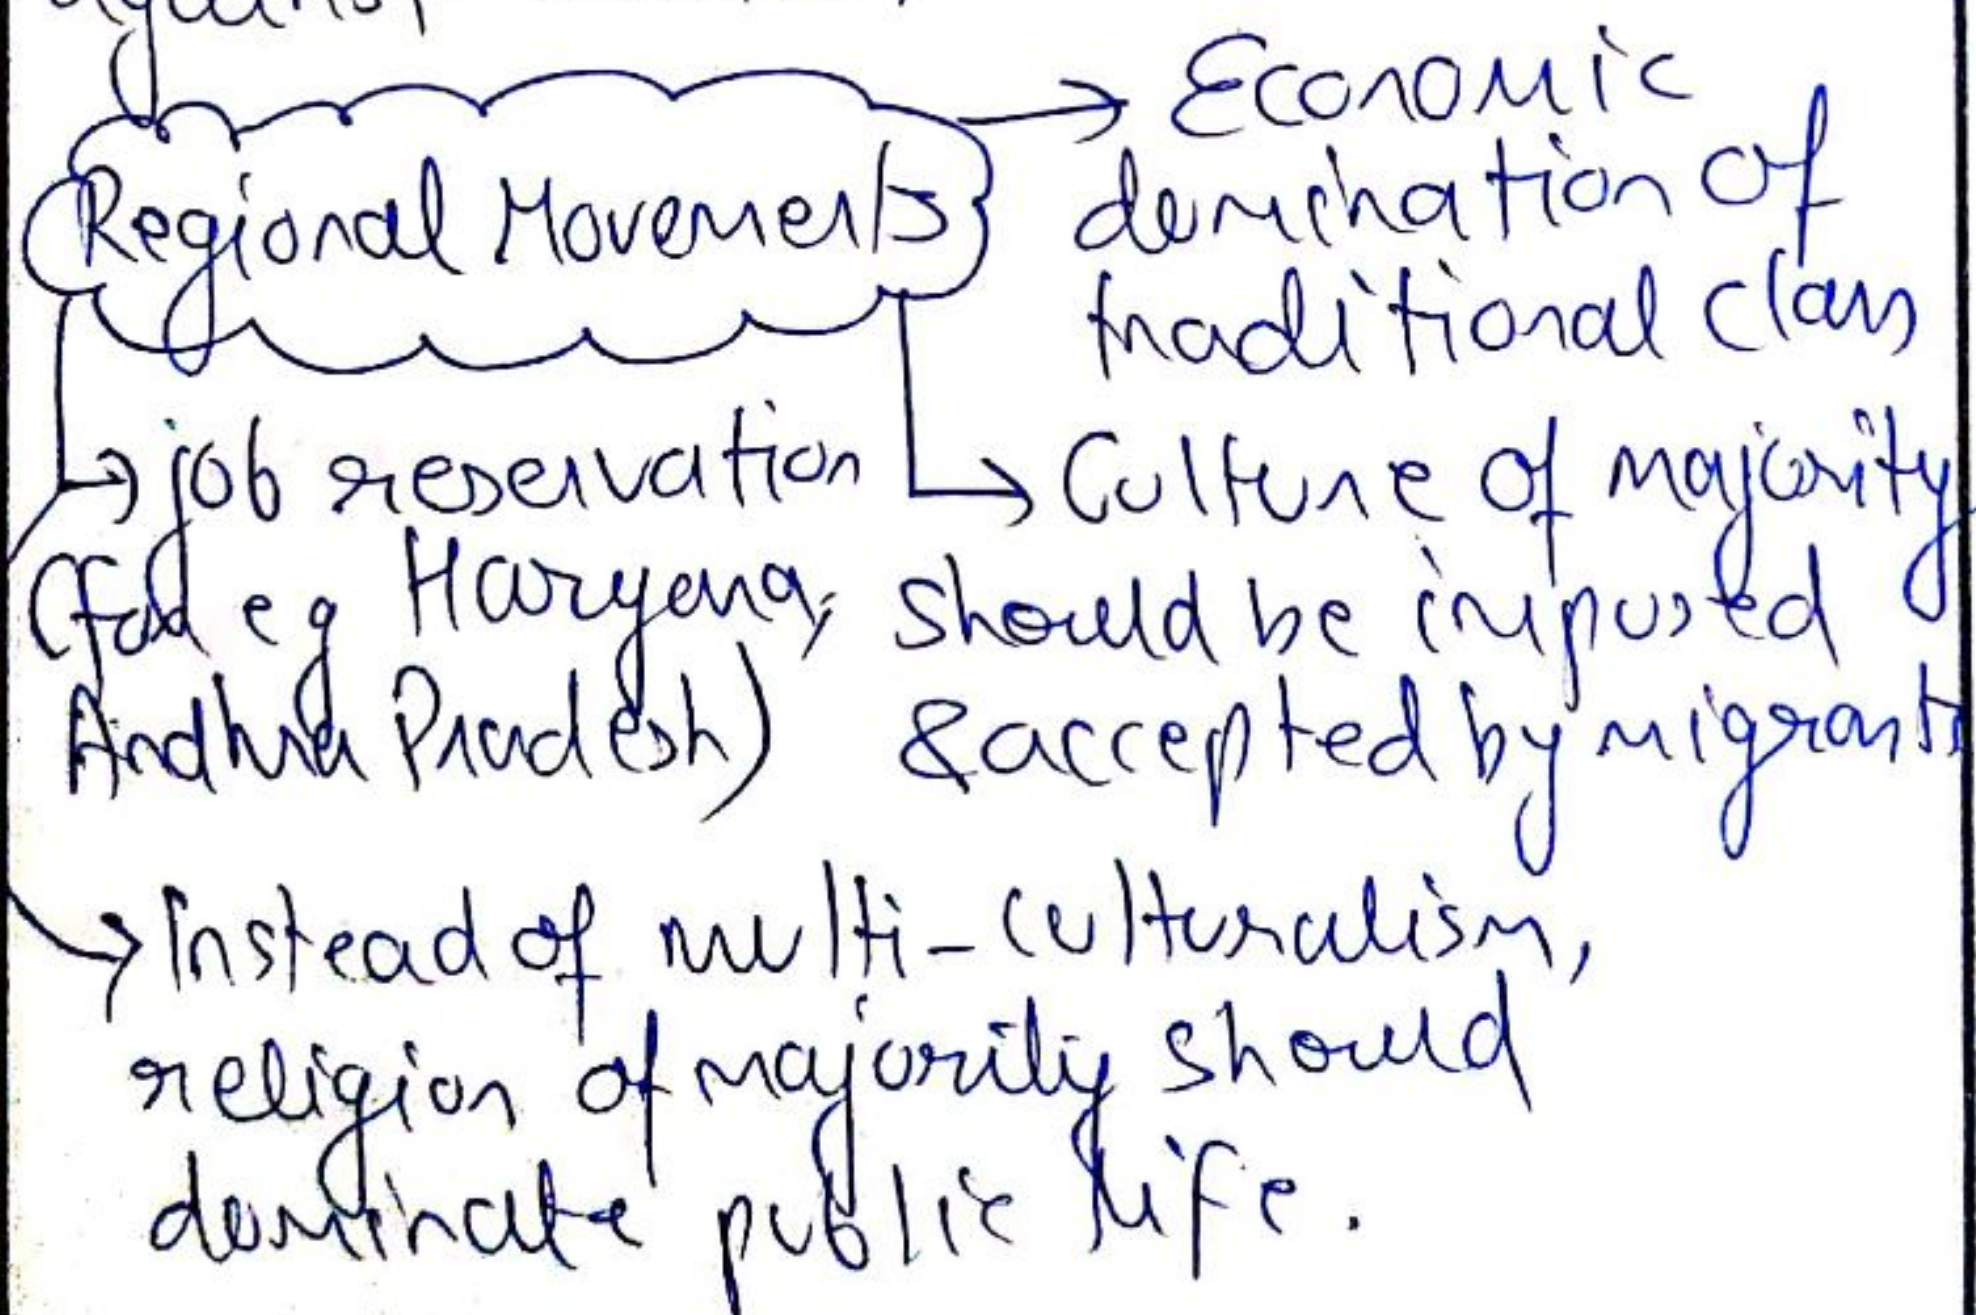 Regional Movements
→ Economic
domination of
traditional class
→ job reservation
(for eg Haryana,
Andhra Pradesh)
→ Culture of majority
should be imposed
& accepted by migrants
→ Instead of multi-culturalism,
religion of majority should
dominate public life.